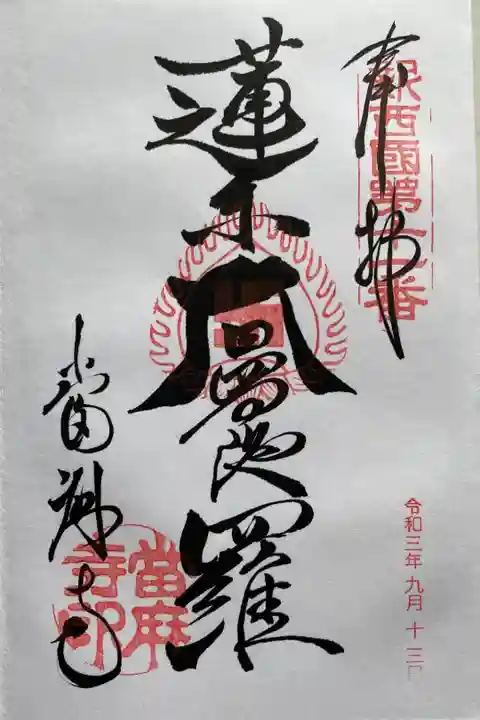 奉拝
新西國第十一番
蓮糸大曼陀羅
當麻寺
當麻寺印
令和三年九月十三日